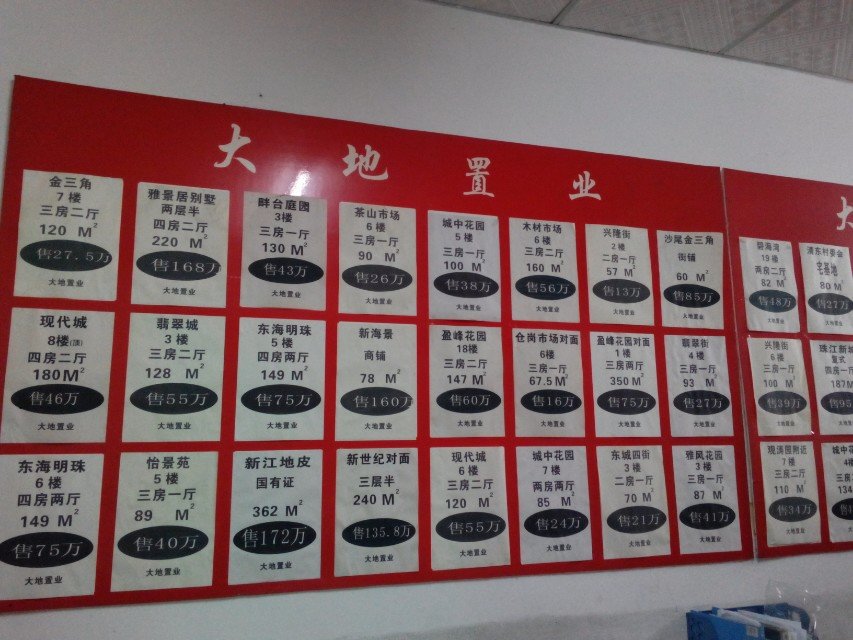 大地置业
金三角
7楼
三房二厅
120 M²
售27.5万
大地置业
雅景居别墅
两层半
四房二厅
220 M²
售168万
大地置业
畔台庭园
3楼
三房一厅
130 M²
售43万
大地置业
茶山市场
6楼
三房一厅
90 M²
售26万
大地置业
城中花园
5楼
三房一厅
100 M²
售38万
大地置业
木材市场
6楼
三房二厅
160 M²
售56万
大地置业
兴隆街
2楼
二房一厅
57 M²
售13万
大地置业
沙尾金三角
街铺
60 M²
售85万
大地置业
现代城
8楼(顶)
四房二厅
180M²
售46万
大地置业
翡翠城
3楼
三房二厅
128 M²
售55万
大地置业
东海明珠
5楼
四房两厅
149 M²
售75万
大地置业
新海景
商铺
78 M²
售160万
大地置业
盈峰花园
18楼
三房二厅
147 M²
售60万
大地置业
仓岗市场对面
6楼
三房一厅
67.5 M²
售16万
大地置业
盈峰花园对面
1楼
三房两厅
350 M²
售75万
大地置业
翡翠街
4楼
三房一厅
93 M²
售27万
大地置业
东海明珠
6楼
四房两厅
149 M²
售75万
大地置业
怡景苑
5楼
三房一厅
89 M²
售40万
大地置业
新江地皮
国有证
362 M²
售172万
大地置业
新世纪对面
三层半
240 M²
售135.8万
大地置业
现代城
6楼
三房二厅
120 M²
售55万
大地置业
城中花园
7楼
两房两厅
85 M²
售24万
大地置业
东城四街
3楼
二房一厅
70 M²
售21万
大地置业
雅凤花园
3楼
三房一厅
87 M²
售41万
大地置业
大
碧海湾
19楼
两房二厅
82 M²
售48万
大地置业
清东村委会
宅基地
80 M²
售27万
大地置业
兴隆街
6楼
三房一厅
100 M²
售39万
大地置业
珠江新城
复式
四房一厅
187M²
售95
大地置业
现涛园附近
7楼
三房二厅
110 M²
售34万
大地置业
城中花
4楼
三房二
134
大地置业